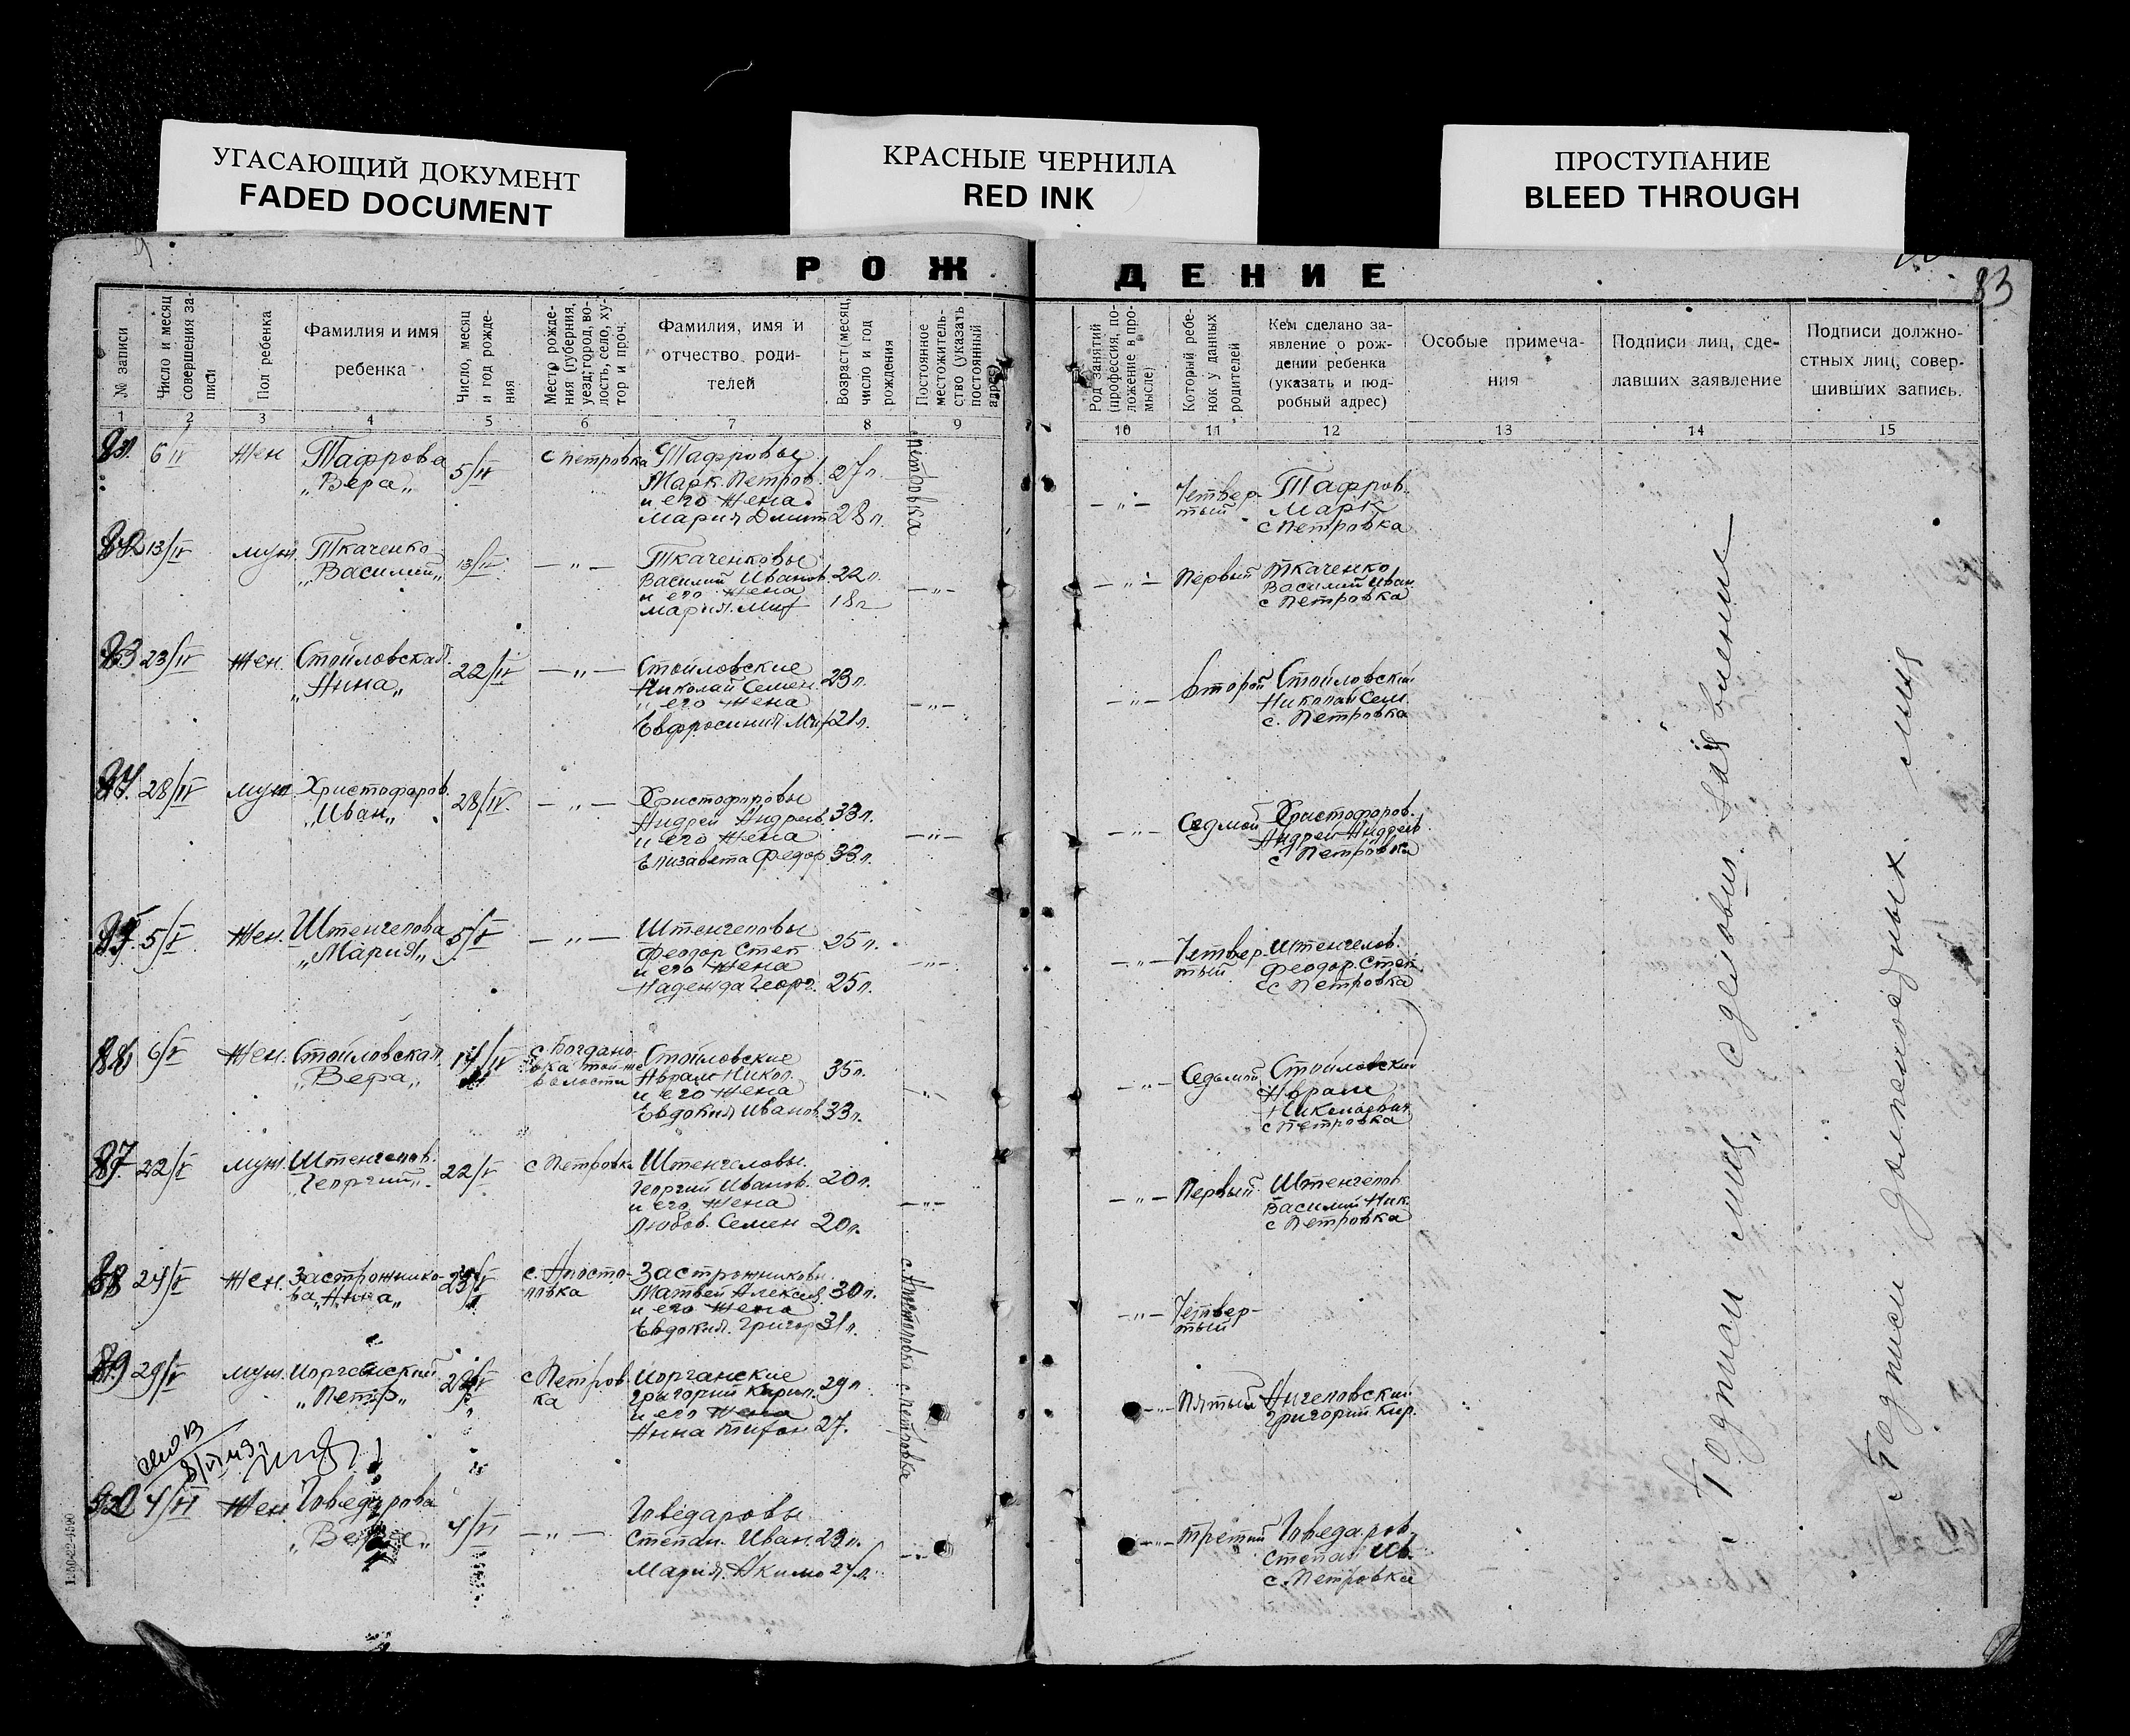 УГАСАЮЩИЙ ДОКУМЕНТ
FADED DOCUMENT
КРАСНЫЕ ЧЕРНИЛА
RED INK
ПРОСТУПАНИЕ
BLEED THROUGH
РОЖДЕНИЕ
83
№ записи
Число и месяц совершения записи
Пол ребенка
Фамилия и имя
ребенка
Число, месяц и год рождения
Место рождения (губерния, уезд, город, волость, село, хутор и проч.
Фамилия, имя и
отчество роди-
телей
Возраст (месяц, число и год рождения
Постоянное местожительство (указать постоянный адрес)
Род занятий (профессия, положение в промысле)
Который ребенок у данных родителей
Кем сделано за-
явление о рож-
дении ребенка
(указать и под-
робный адрес)
Особые примеча-
ния
Подписи лиц, сде-
лавших заявление
Подписи должно-
стных лиц, совер-
шивших запись.
1 2 3 4 5 6 7 8 9 10 11 12 13 14 15
6/IV Жен Тафрова 5/IV с Петровка Тафровы 27 л. Петровка
„Вера„ Марк Петров.
и его жена
Мария Дмит 28 л.
—„— Четвер- Тафров.
тый Марк
с Петровка
82 13/IV муж. Ткаченко 13/IV —„— Ткаченковы
„Василий„ Василий Иванов. 22 л.
и его жена —„—
Мария. Миf 18 л
—„— Первый Ткаченко
Василий Иван
с Петровка
83 23/IV Жен. Стойловская. 22/IV —„— Стойловские
„Анна„ Николай Семен. 23 л.
и его жена —„—
Евфросиния Миf 21 л.
—„— Второй Стойловский
Николай Сем.
с. Петровка
84. 28/IV муж Христофоров. 28/IV. —„— Христофоровы
„Иван„ Андрей Андреев. 33 л.
и его жена —„—
Елизавета Федор. 33 л.
—„— Седмой Христофоров.
Андрей Андреев
с Петровка
85. 5/V Жен. Штенгелова 5/V —„— Штенгеловы
„Мария„ Феодор Степ 25 л.
и его жена —„—
Надежда Георг. 25 л.
—„— Четвер- Штенгелов.
тый Феодор. Степ.
с Петровка
86 6/V Жен. Стойловская. 14/IV с. Богдано- Стойловские
„Вера„ вка той-же Аврам Никол. 35 л.
волости и его жена
Евдокия Иванов 33 л.
—„— Седьмой Стойловский
Аврам
Николаевич
с Петровка
87. 22/V муж Штенгелов. 22/V с Петровка Штенгеловы.
„Георгий„ Георгий Иванов. 20 л.
и его жена —„—
Любов. Семен 20 л.
—„— Первый Штенгелов
Василий Ник.
с Петровка
88 24/V Жен. Застрожнико- 23/V с. Аposто- Застрожниковы
ва „Анна„ ловка Матвей Алексеев. 30 л.
и его жена
Евдокия. Григор 31 л.
—„— Четвер-
тый
89 29/V муж. Иорганский с Петров- Иорганские
„Петр„ ка Григорий Кирил. 29 л
и его жена с Петровка
Анна 27.
—„— Пятый
Григорий Кир.
4/VI Жен. Говедарова 4/VI —„— Говедаровы
Степан. Иван. 23 л.
Мария. Акимо 24 л.
—„— третий Говедаров
Степан Ив.
с. Петровка
Подписи лиц, сделавших заявление
Подписи должностных лиц